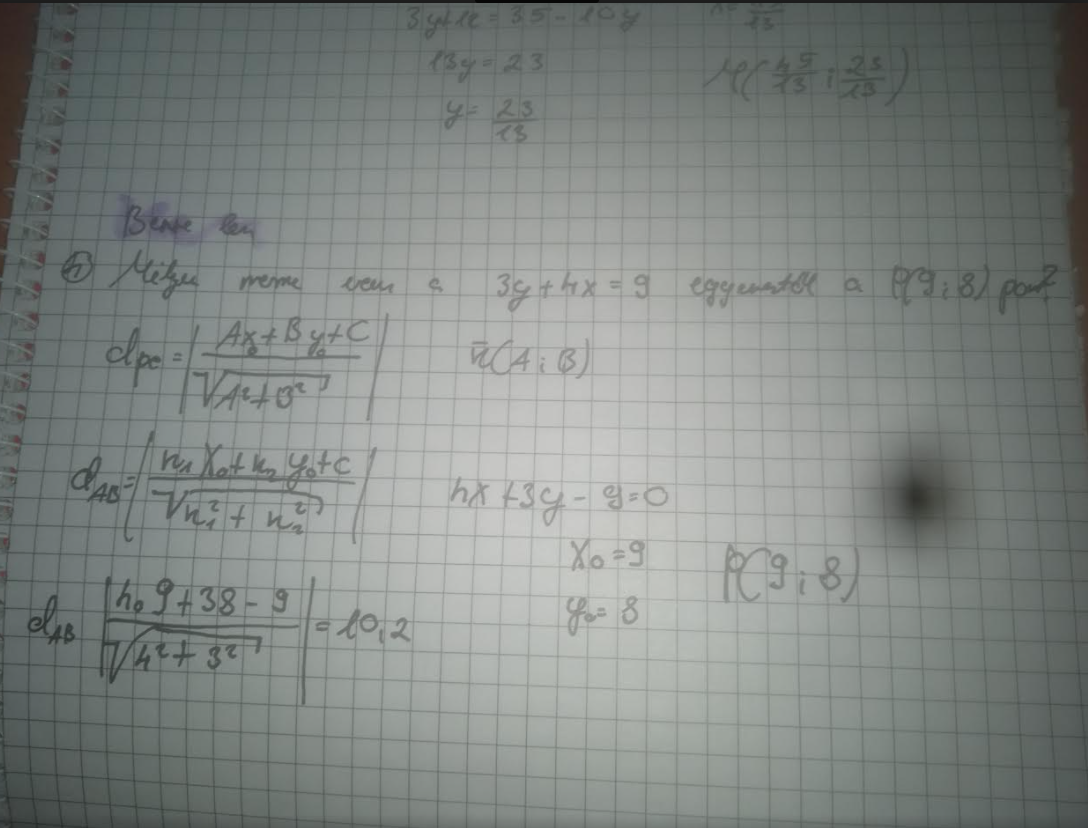 3y+12=35-10y
13y=23
M(49/13 ; 23/13)
y= 23/13
Benne van
④ Milyen messze van a 3y+4x=9 egyenestől a P(9;8) pont?
d_Pe = |(Ax₀+By₀+C)/√(A²+B²)| n̄(A;B)
d_AB = |(n₁x₀+n₂y₀+c)/√(n₁²+n₂²)| 4x+3y-9=0
x₀=9 P(9;8)
y₀=8
d_AB |(4·9+38-9)/√(4²+3²)| = 10,2